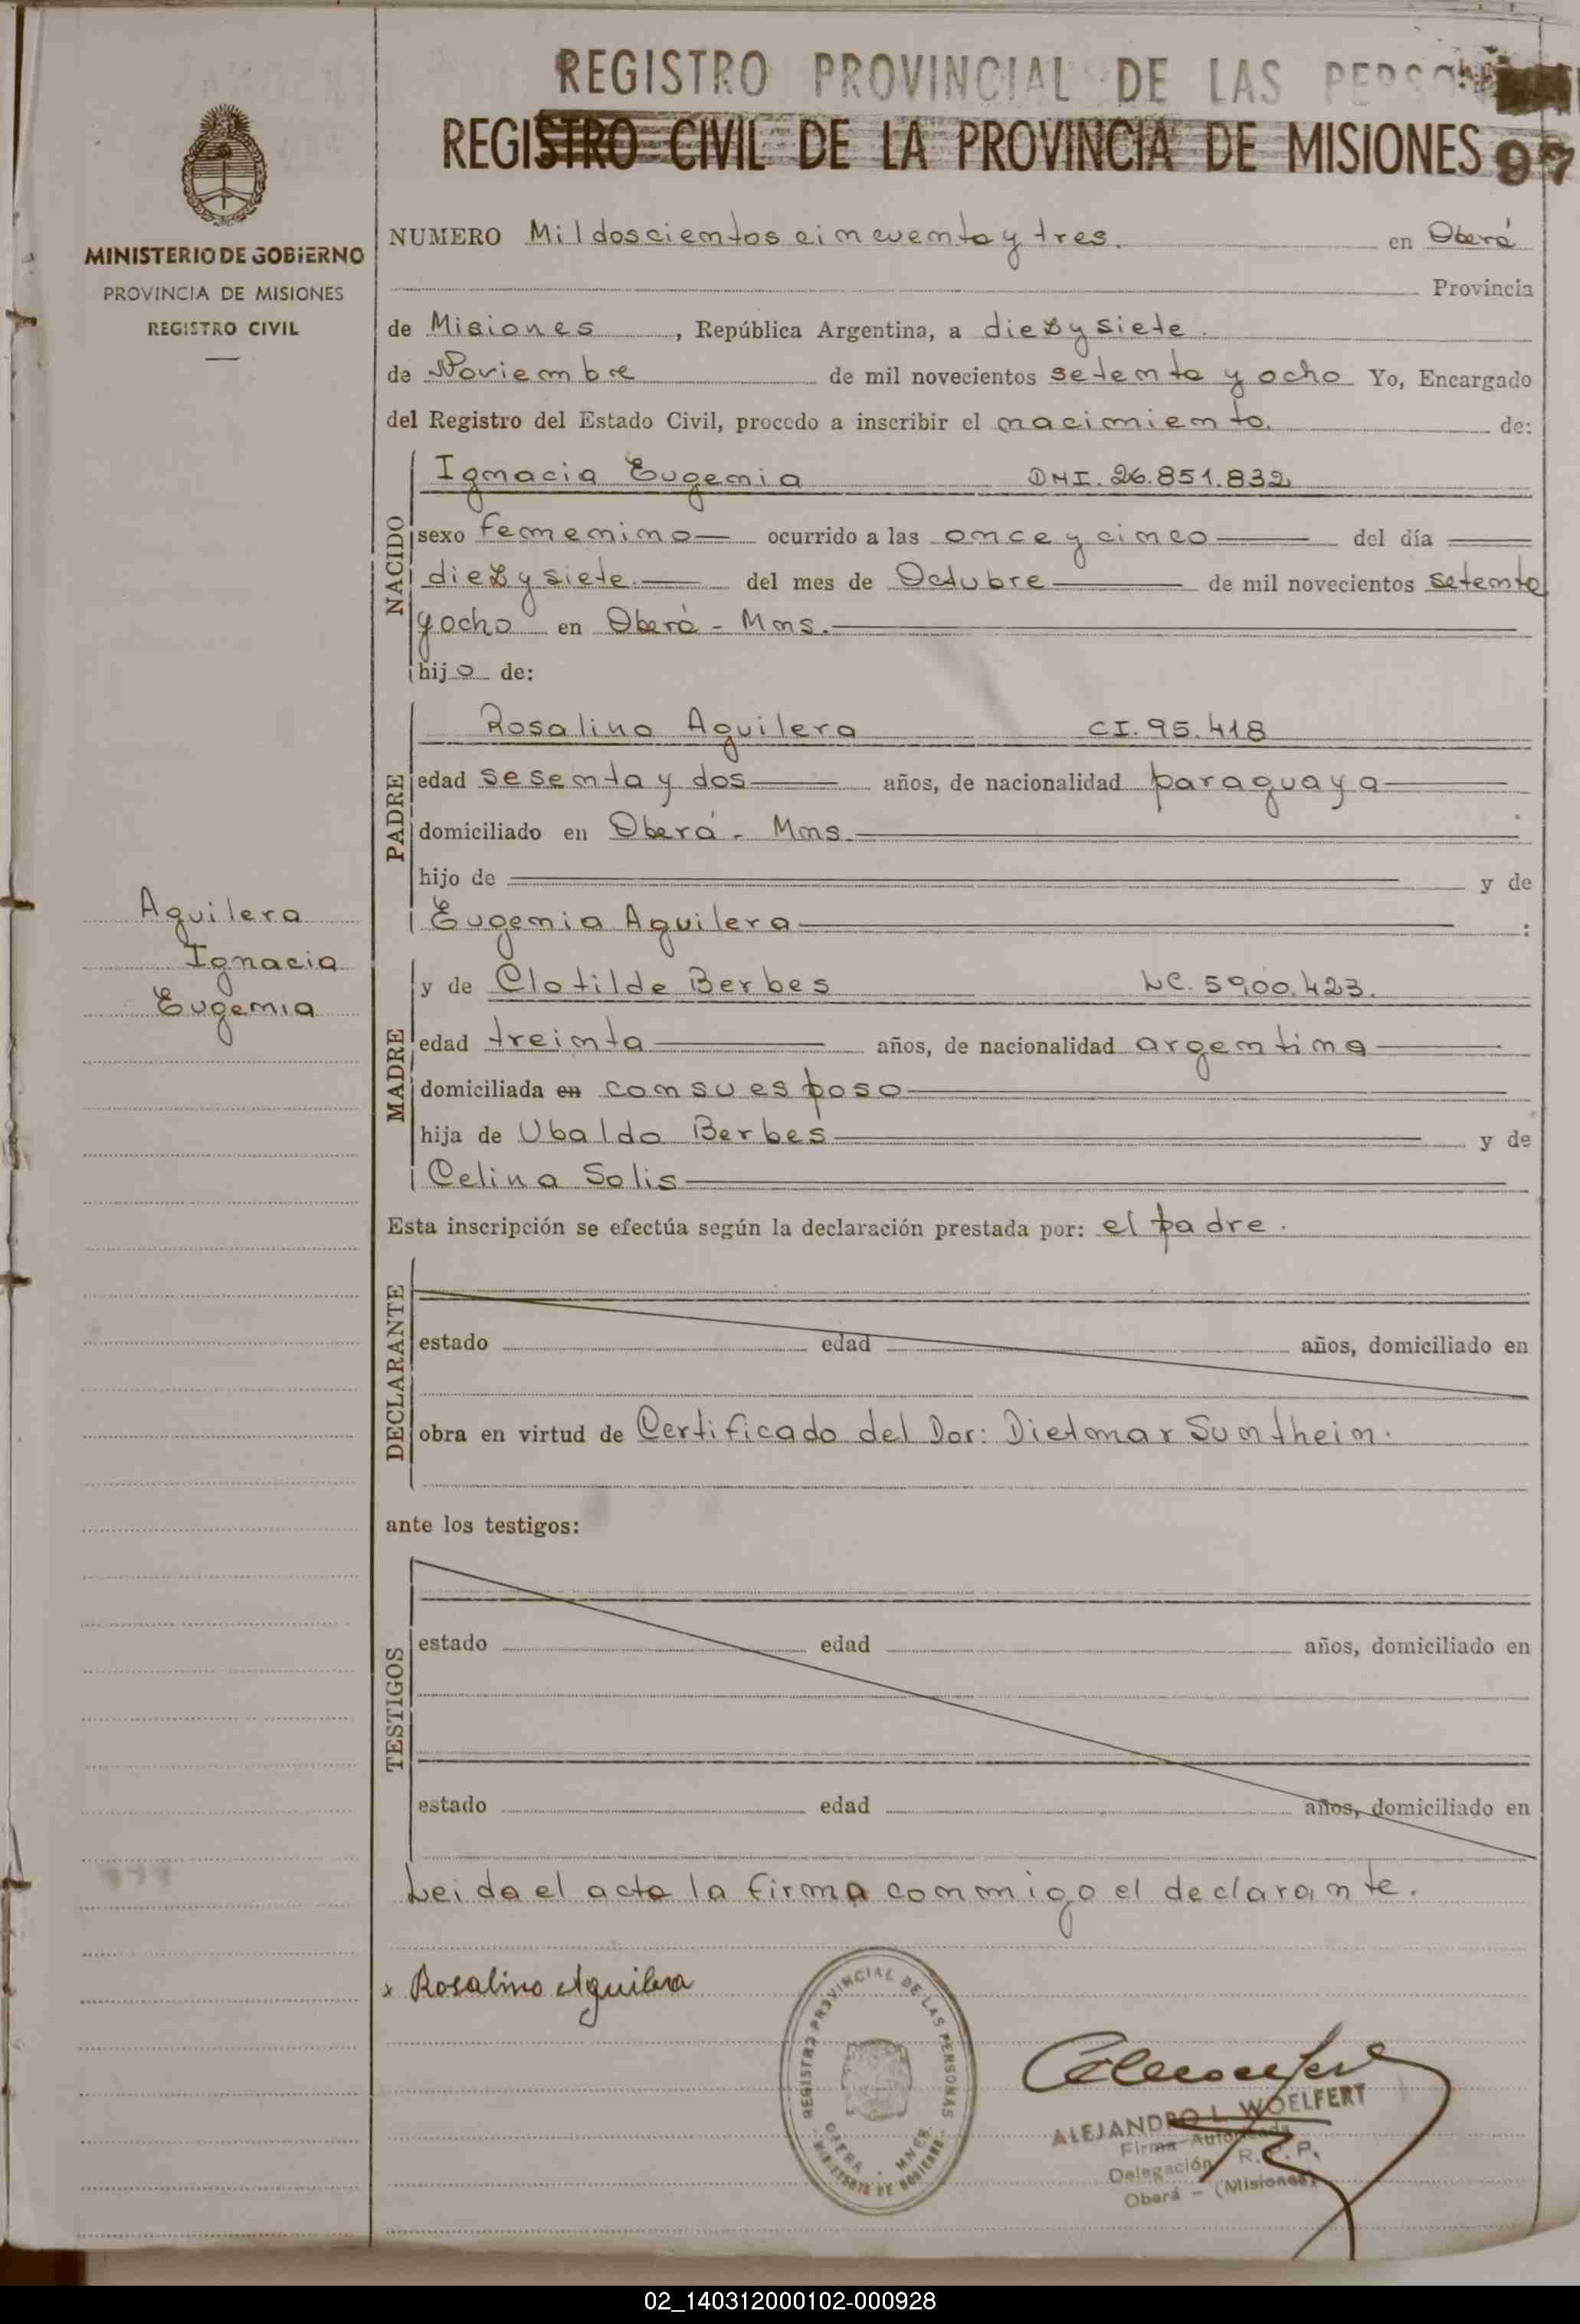 REGISTRO PROVINCIAL DE LAS
REGISTRO CIVIL DE LA PROVINCIA DE MISIONES 97
MINISTERIO DE GOBIERNO
PROVINCIA DE MISIONES
REGISTRO CIVIL
NUMERO Mil doscientos cincuenta y tres. en Oberá
Provincia
de Misiones, República Argentina, a diez y siete.
de Noviembre de mil novecientos setenta y ocho Yo, Encargado
del Registro del Estado Civil, procedo a inscribir el nacimiento. de:
NACIDO
Ignacia Eugenia DNI. 26.851.832
sexo femenino ocurrido a las once y cinco del día
diez y siete. del mes de Octubre de mil novecientos setenta
y ocho en Oberá - Mns.
hijo de:
PADRE
Rosalino Aguilera CI. 95.418
edad sesenta y dos años, de nacionalidad paraguaya
domiciliado en Oberá - Mns.
hijo de y de
Eugenia Aguilera :
Aguilera
Ignacia
Eugenia
MADRE
y de Clotilde Berbes LC. 5900.423.
edad treinta años, de nacionalidad argentina
domiciliada en con su esposo
hija de Ubaldo Berbes y de
Celina Solis
Esta inscripción se efectúa según la declaración prestada por: el padre.
DECLARANTE
estado edad años, domiciliado en
obra en virtud de Certificado del Dor: Dietmar Sumthein.
ante los testigos:
TESTIGOS
estado edad años, domiciliado en
estado edad años, domiciliado en
Leida el acta la firma conmigo el declarante.
x Rosalino Aguilera
REGISTRO PROVINCIAL DE LAS PERSONAS
OBERA - MNES.
MINISTERIO DE GOBIERNO
ALEJANDRO L. WOELFERT
Firma Autorizada
Delegación R. P. P.
Oberá - (Misiones)
02_140312000102-000928